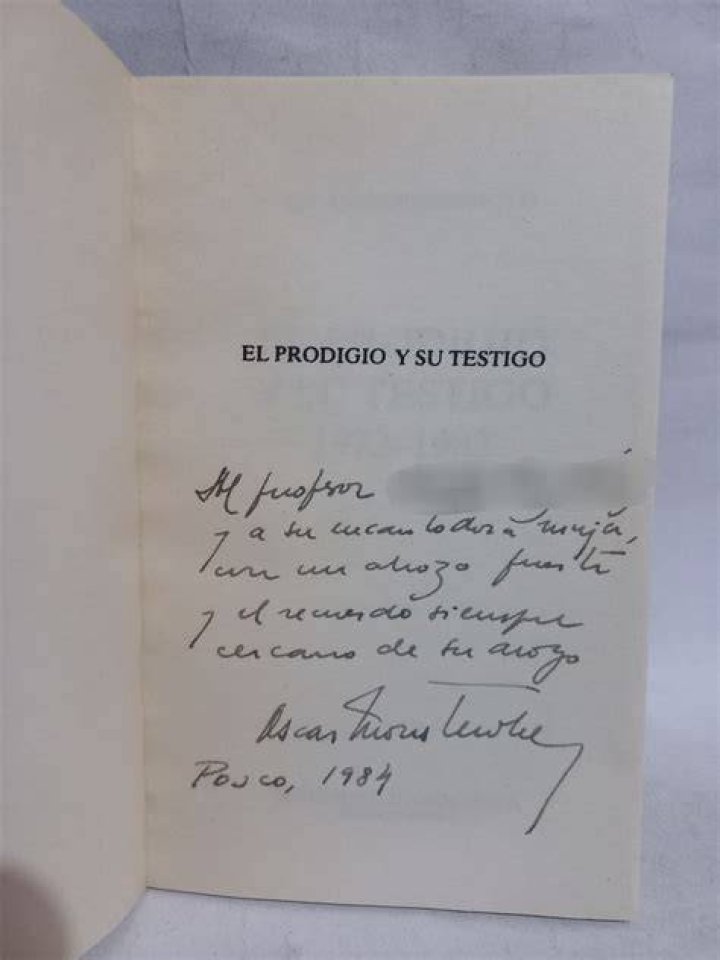 EL PRODIGIO Y SU TESTIGO
Al profesor
y a su encantadora mujer,
con un abrazo fuerte
y el recuerdo siempre
cercano de su
Oscar
1984